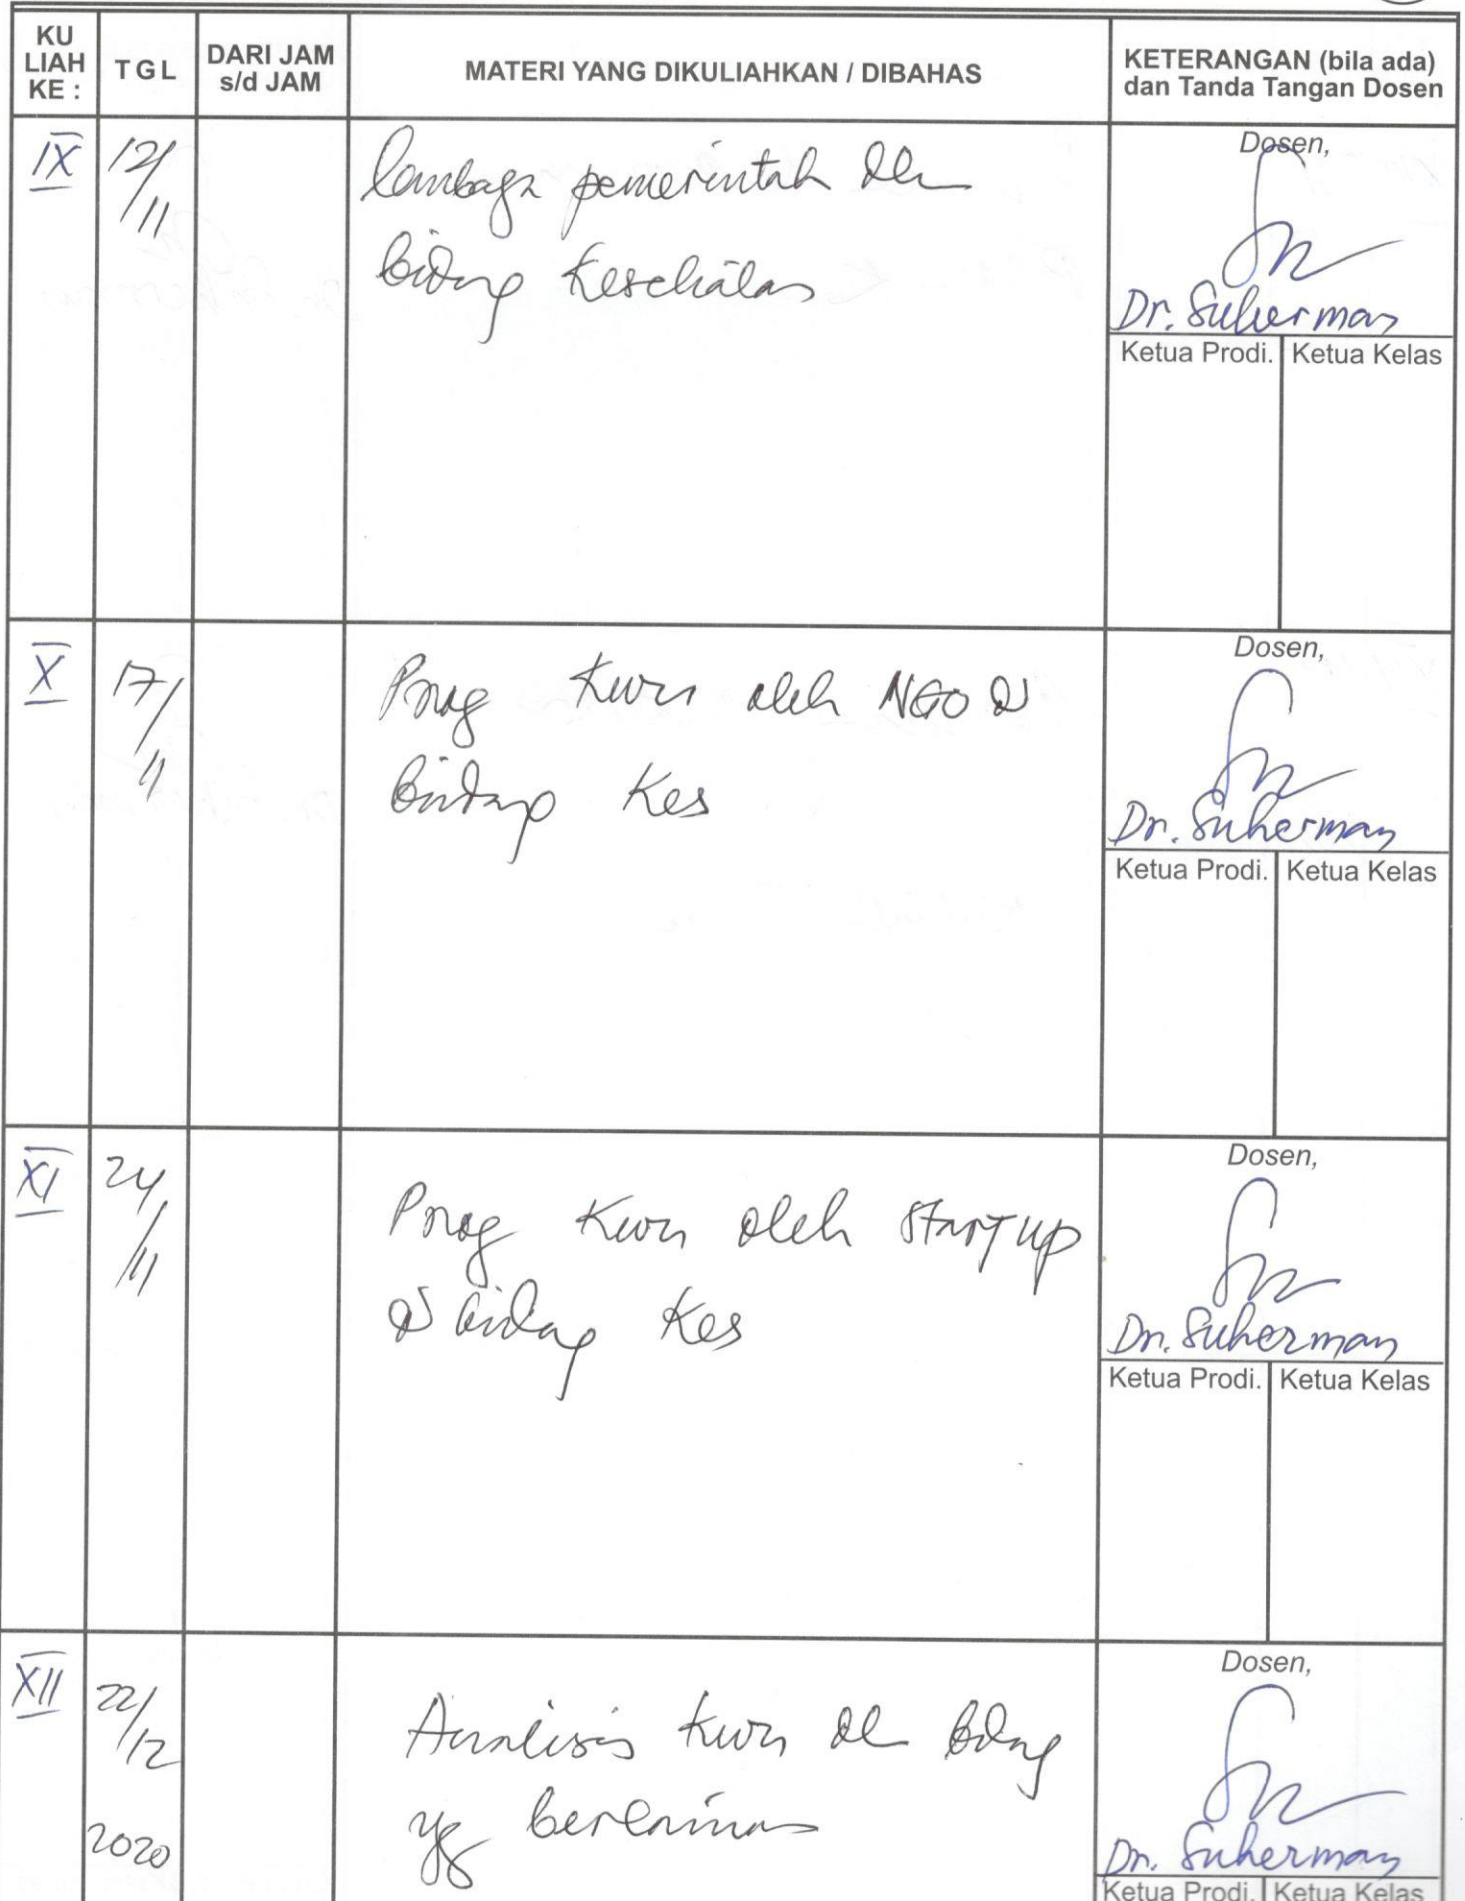 KU LIAH KE :
TGL
DARI JAM s/d JAM
MATERI YANG DIKULIAHKAN / DIBAHAS
KETERANGAN (bila ada) dan Tanda Tangan Dosen
IX
12/11
Lembaga pemerintah dlm
bidang Kesehatan
Dosen,
Dr. Suherman
Ketua Prodi.
Ketua Kelas
X
17/11
Prog Kwu oleh NGO di
bidang Kes
Dosen,
Dr. Suherman
Ketua Prodi.
Ketua Kelas
XI
24/11
Prog Kwu oleh startup
di bidang Kes
Dosen,
Dr. Suherman
Ketua Prodi.
Ketua Kelas
XII
22/12
2020
Analisis Kwu dlm bidang
yg berlainan
Dosen,
Dr. Suherman
Ketua Prodi.
Ketua Kelas